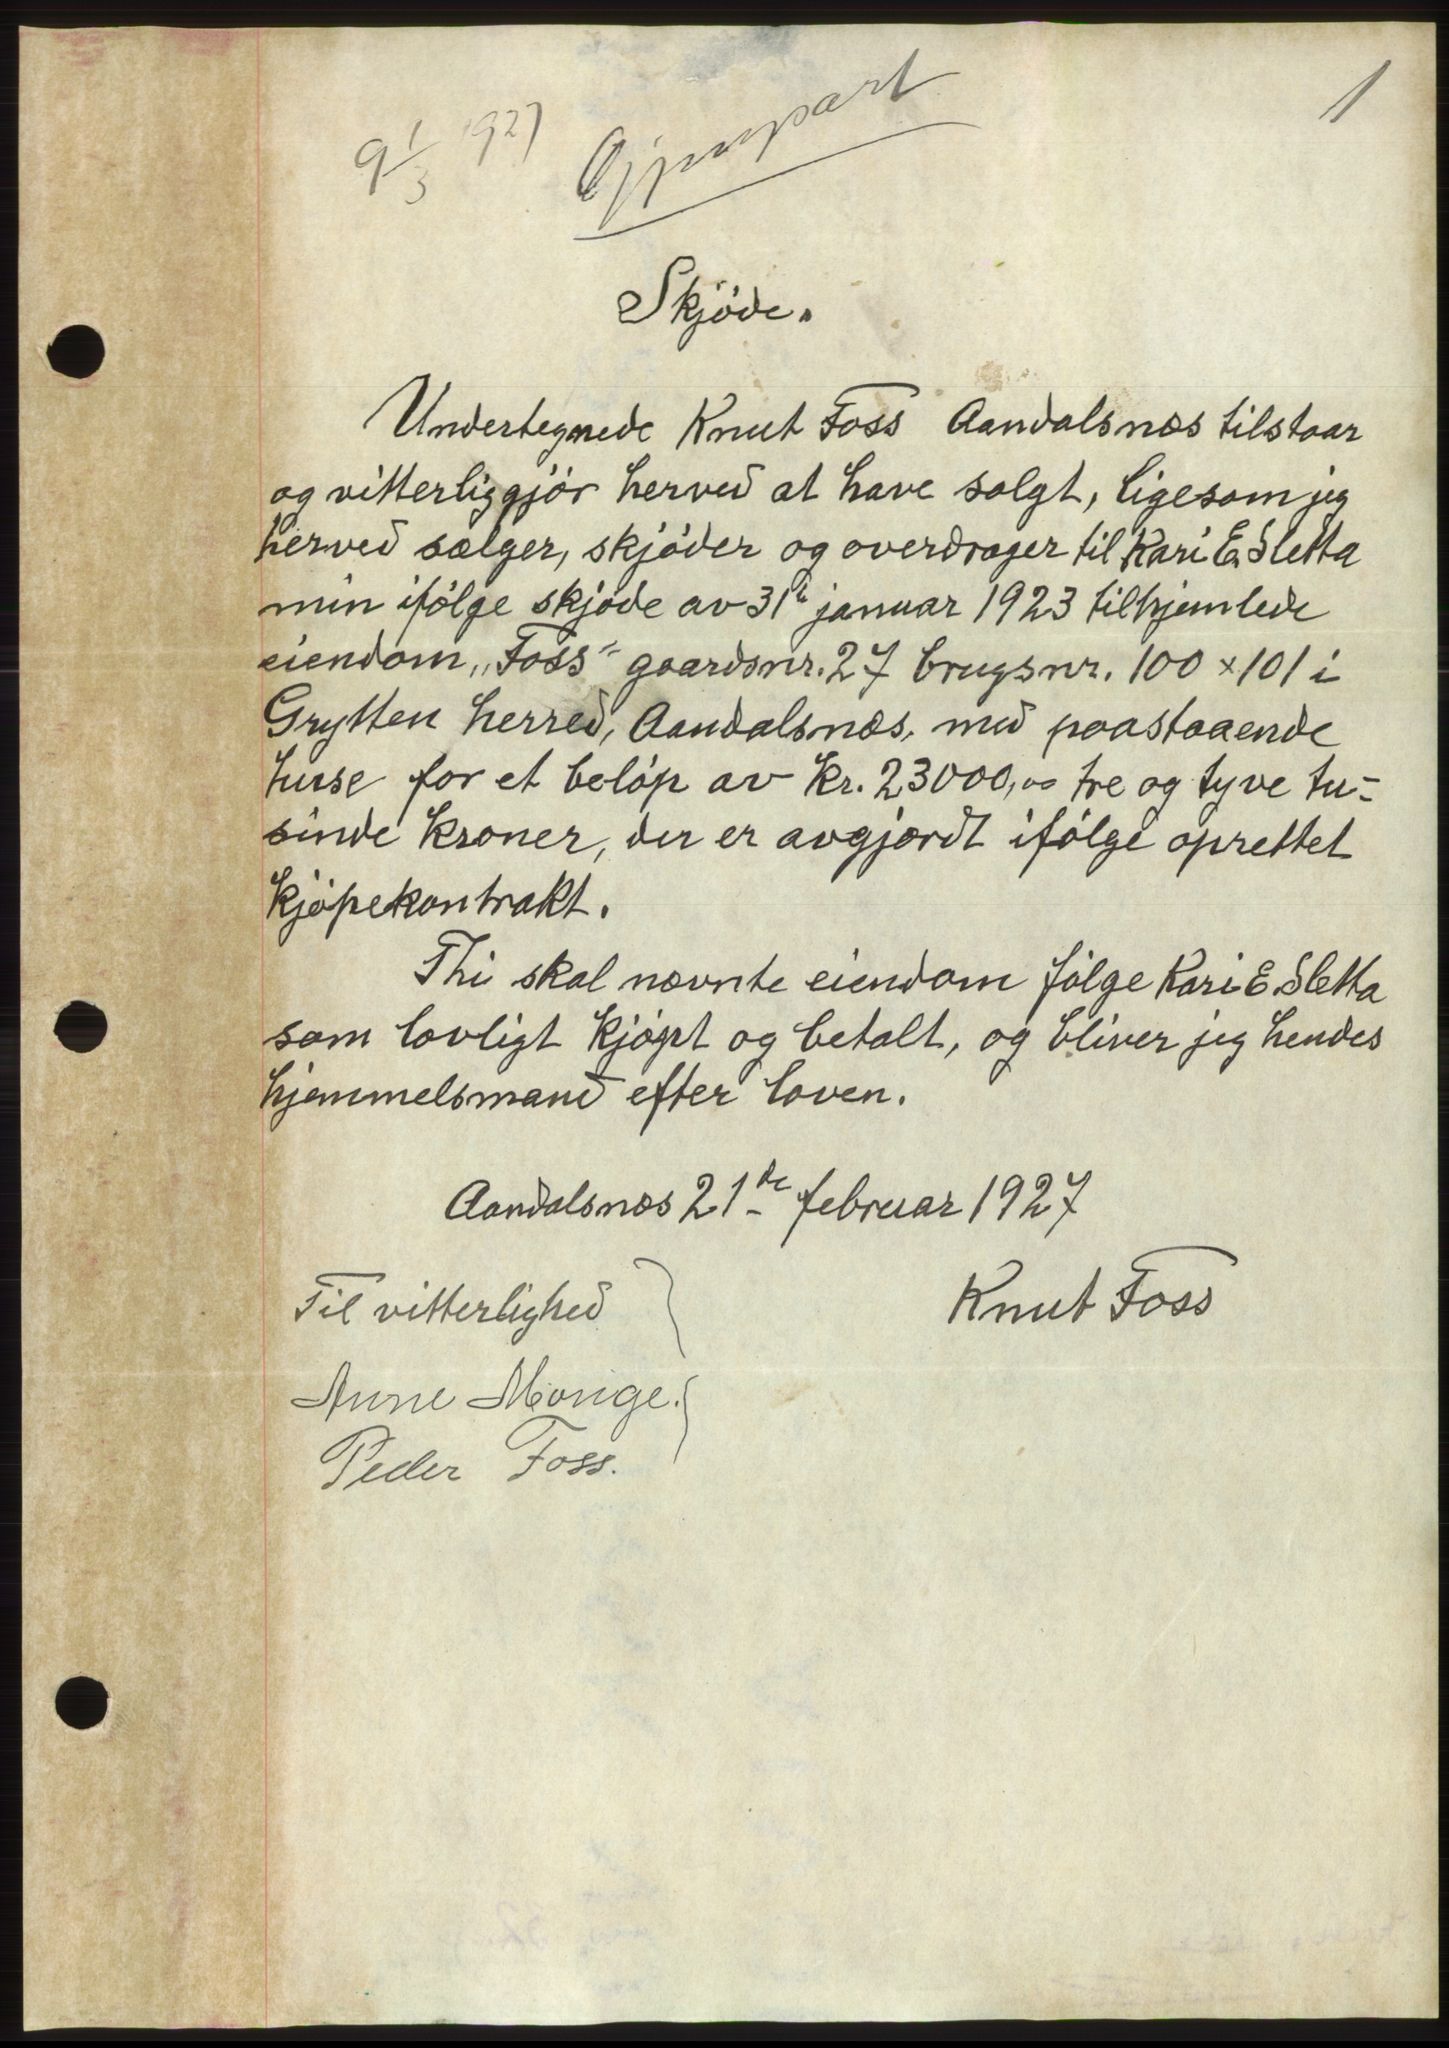 1
9 1/3 1927
Gjenpart
Skjöde.
Undertegnede Knut Foss Aandalsnæs tilstaar
og vitterliggjör herved at have solgt, ligesom jeg
herved sælger, skjöder og overdrager til Kari E. Sletta
min ifölge skjöde av 31te januar 1923 tilhjemlede
eiendom „Foss" gaardsnr. 27 brugsnr. 100 × 101 i
Grytten herred, Aandalsnæs, med paastaaende
huse for et belöp av kr. 23000,00 tre og tyve tu-
sinde kroner, der er avgjordt ifölge oprettet
kjöpekontrakt.
Thi skal nævnte eiendom fölge Kari E. Sletta
som lovligt kjöpt og betalt, og bliver jeg hendes
hjemmelsmand efter loven.
Aandalsnæs 21de februar 1927
Til vitterlighed
Knut Foss
Anne Monge.
Peder Foss.